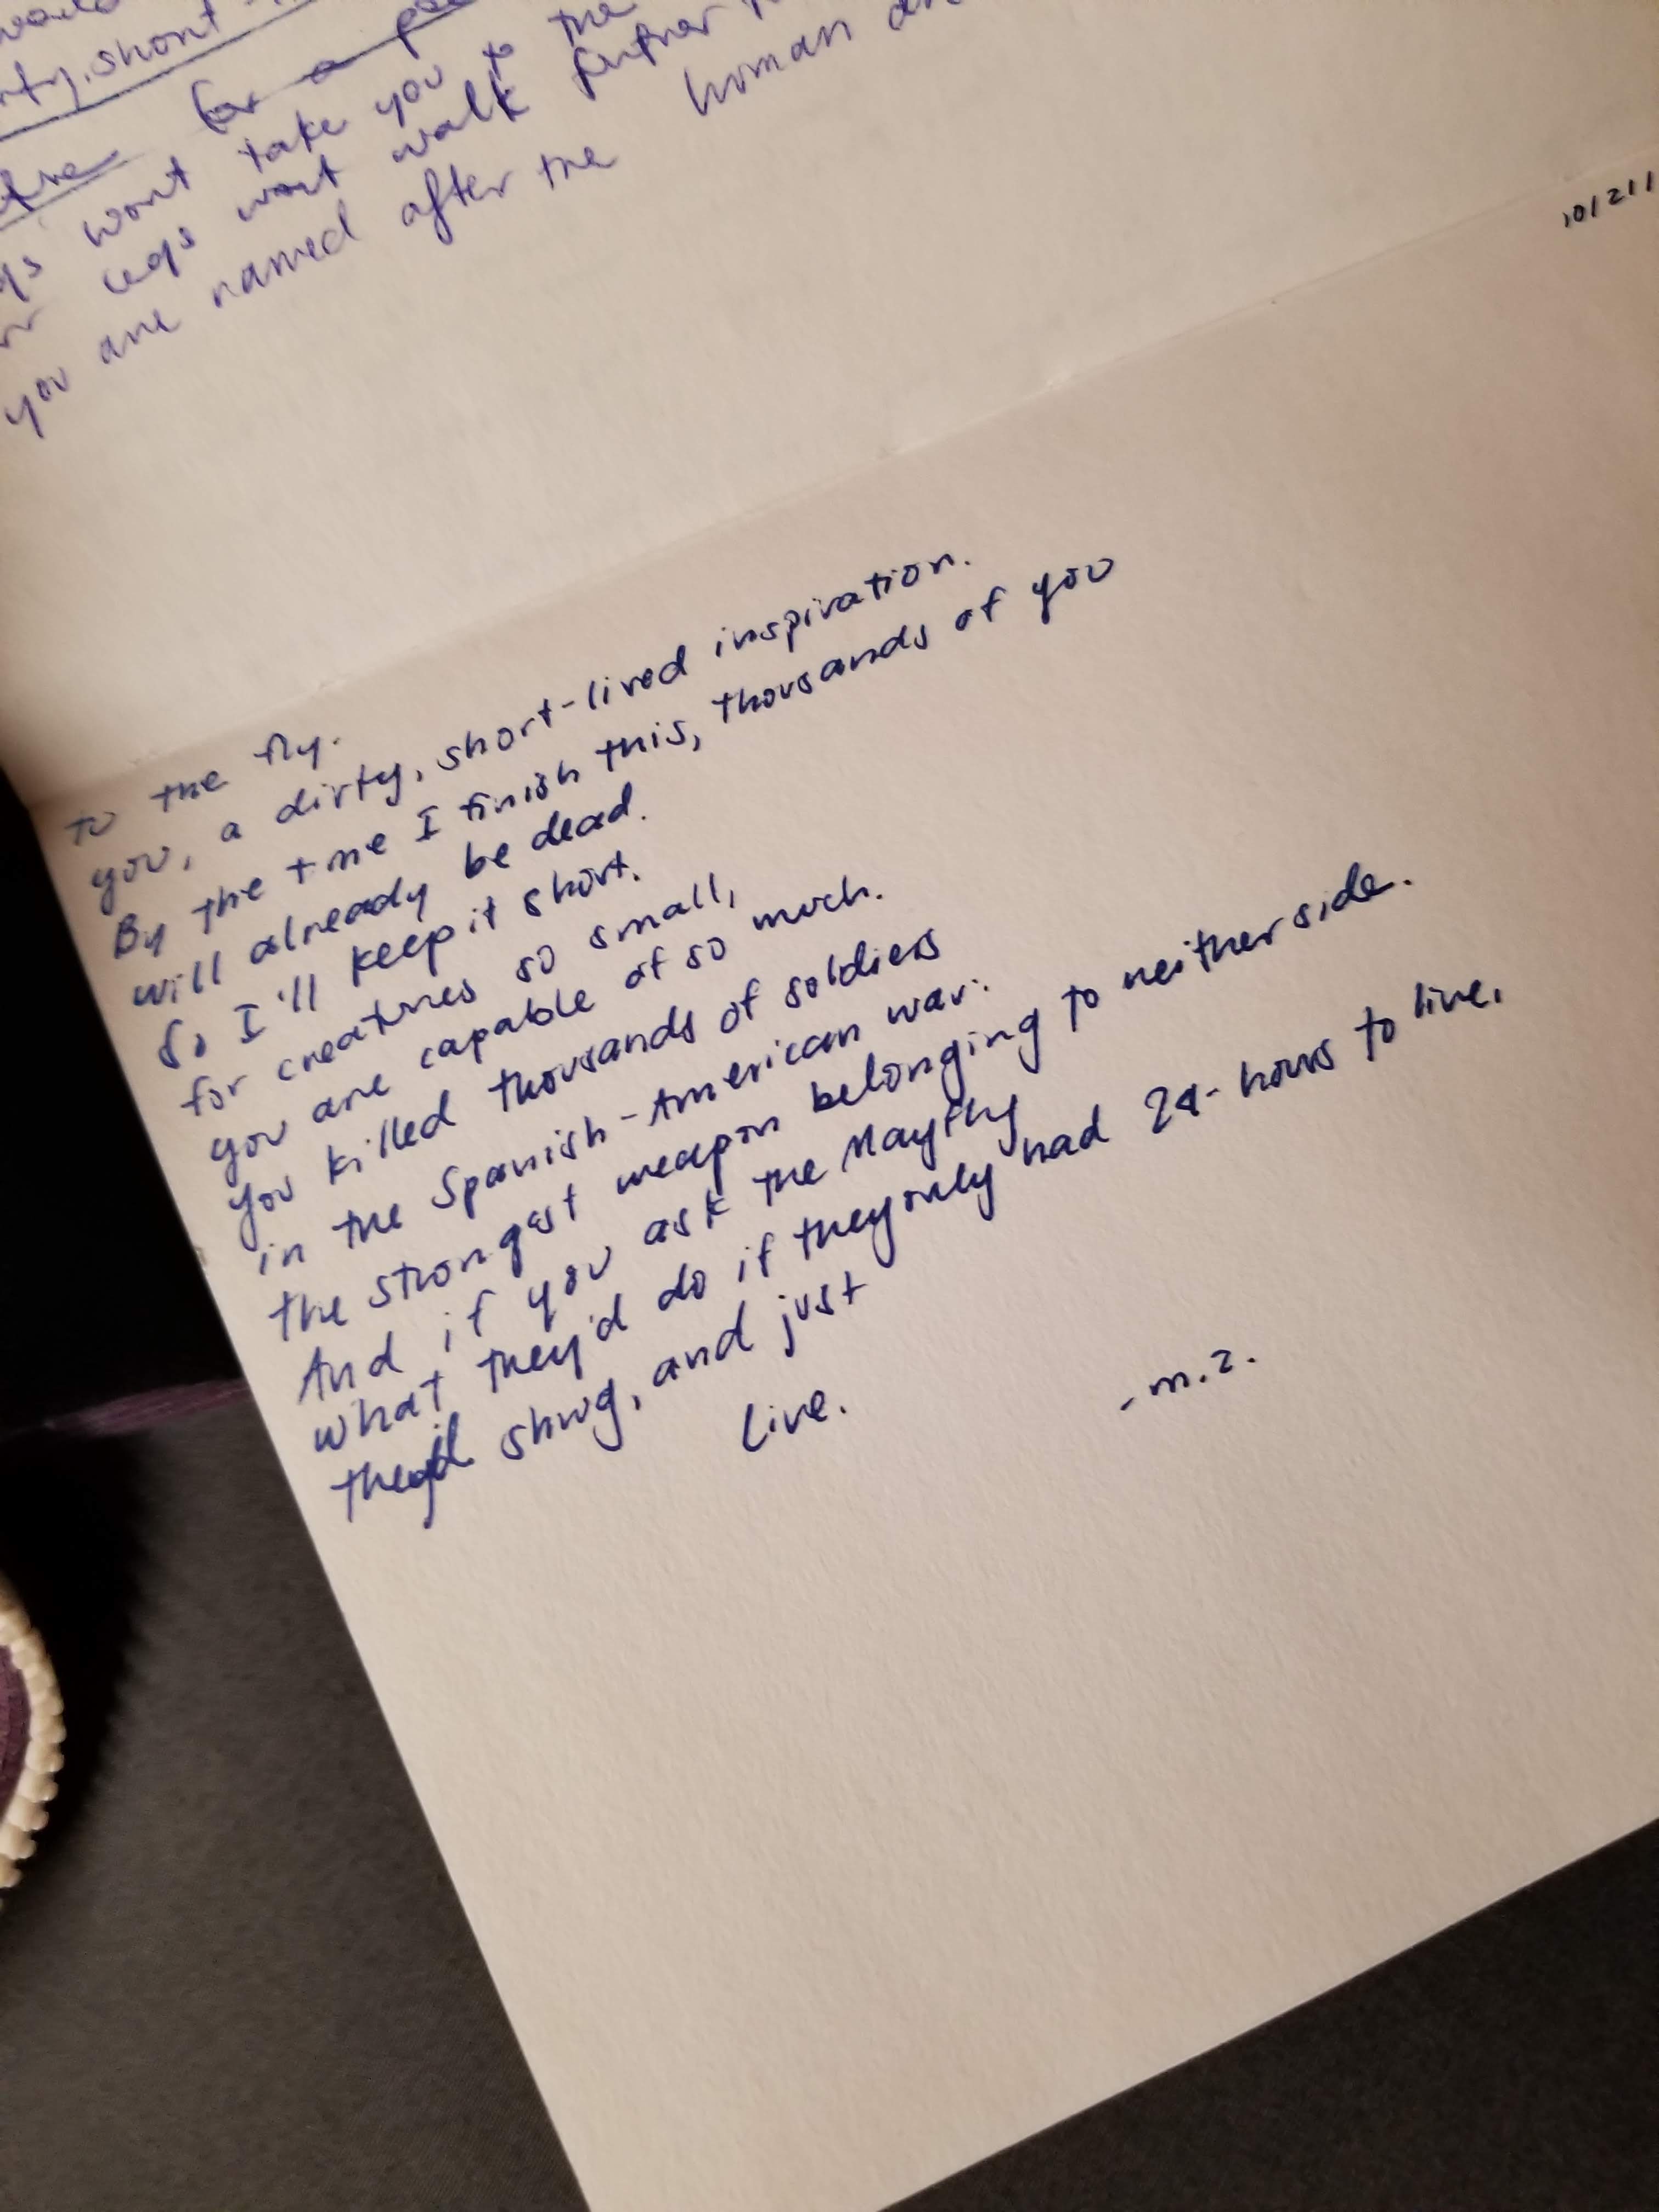 short
for a
wont take you to the
legs wont walk further
you are named after the human
10/21/
to the fly.
you, a dirty, short-lived inspiration.
By the tme I finish this, thousands of you
will already be dead.
So I'll keep it short.
for creatures so small,
you are capable of so much.
you killed thousands of soldiers
in the Spanish-American war.
the strongest weapon belonging to neither side.
And if you ask the Mayfly
what they'd do if they only had 24-hours to live,
they'd shrug, and just
live.
-m.z.